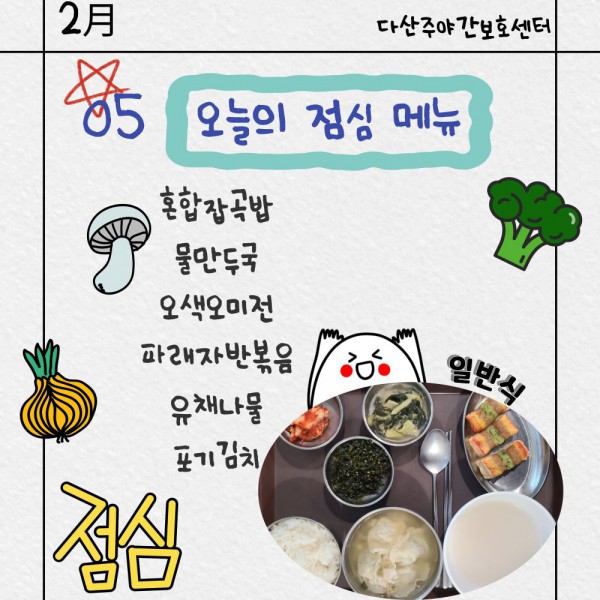 2月
다산주야간보호센터
05
오늘의 점심 메뉴
혼합잡곡밥
물만두국
오색오미전
파래자반볶음
유채나물
포기김치
일반식
점심